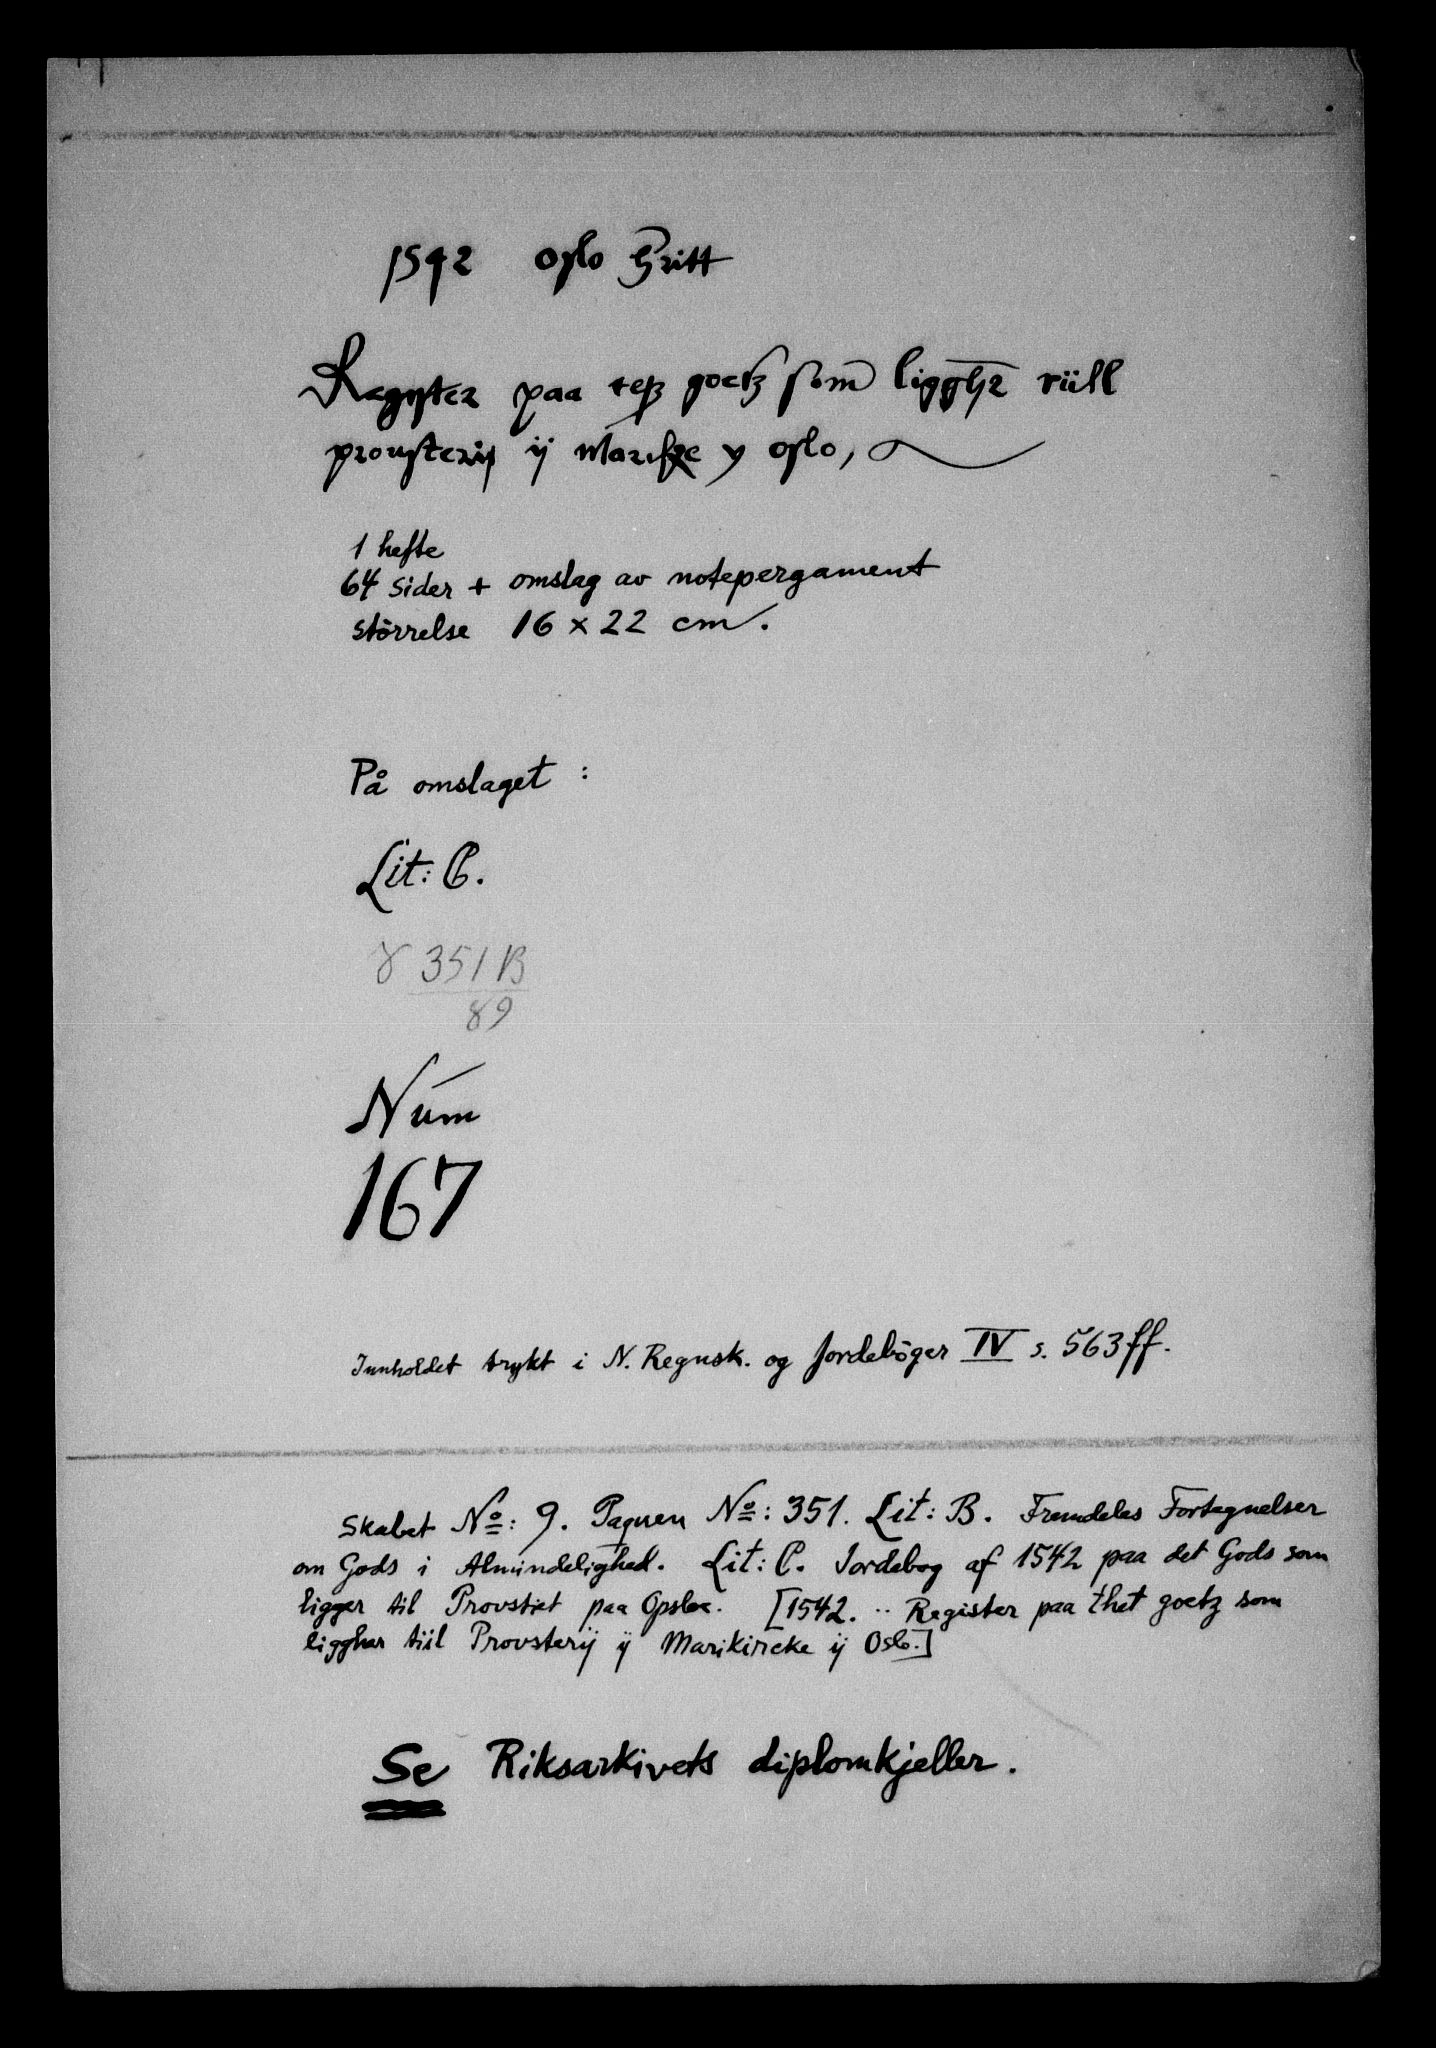 1542 Oslo
Regyster paa goetz som liggher tiill
prousterij ij Marikirke y oslo,
1 hefte
64 sider + omslag av notepergament
störrelse 16 x 22 cm.
På omslaget :
Lit: C.
351 B
89
Num
167
Innholdet trykt i N. Regnsk. og Jordebøger IV s. 563 ff.
Skabet No: 9. Paquen No: 351. Lit: B. Fremdeles Fortegnelser
om Gods i Almindelighed. Lit: C. Jordebog af 1542 paa det Gods som
ligger til Provstiet paa Opsloe. [1542. .. Register paa thet goetz som
ligghar tiil Provsterij ij Marikircke ij Oslo.]
Se Riksarkivets diplomkjeller.